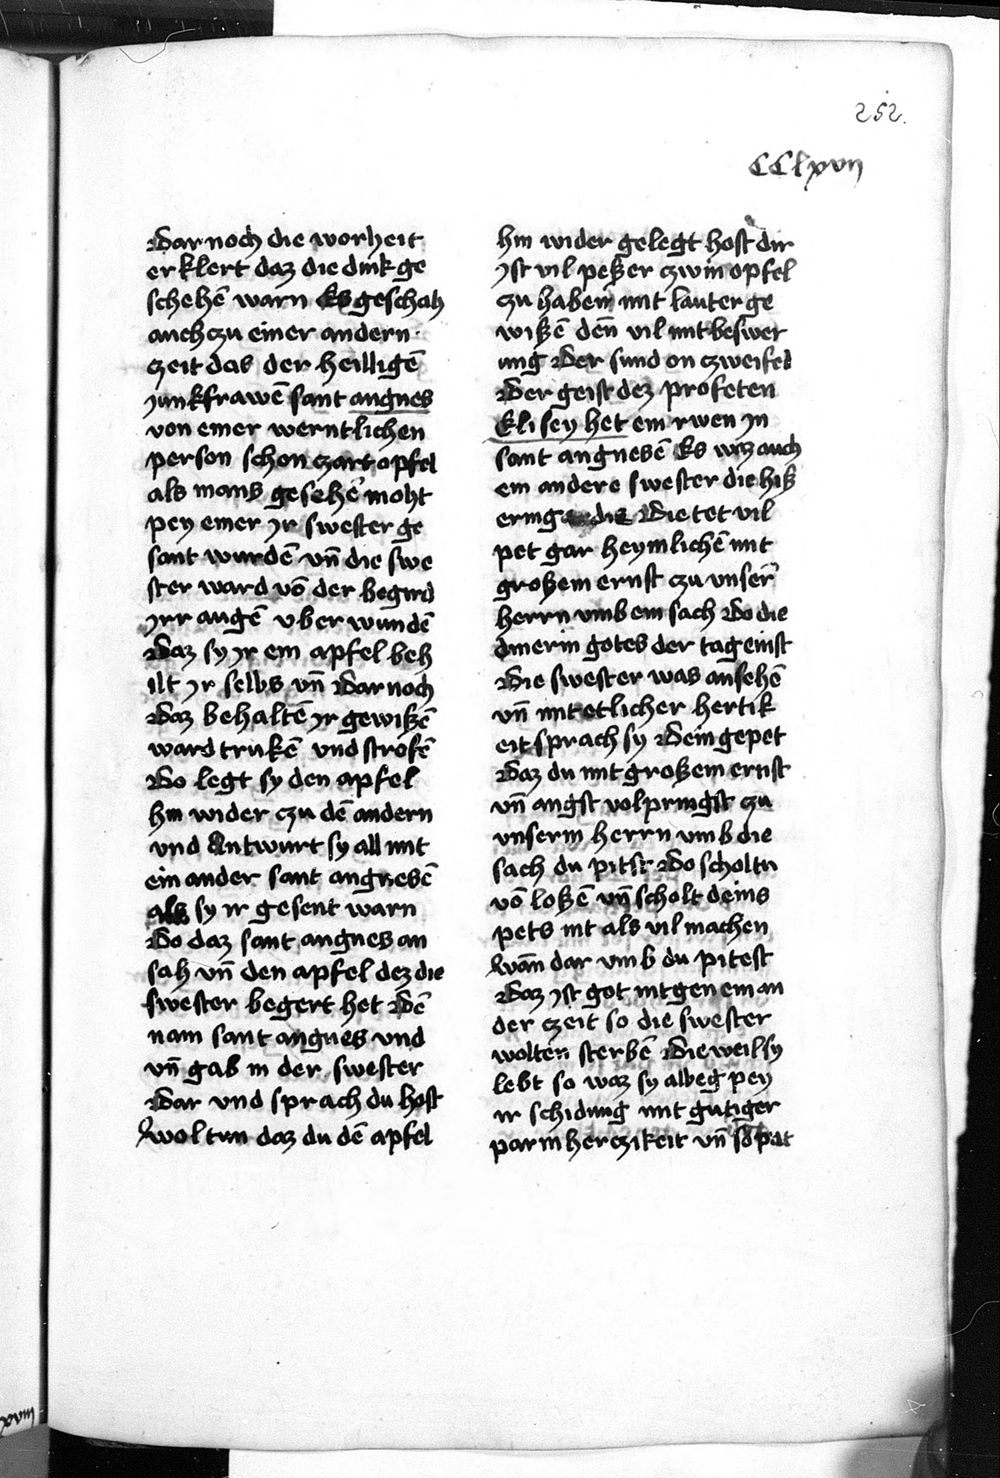 252.
CClxvij
Dar noch die worheit
erklert daz die dink ge
schehē warn Es geschah
auch czu einer andern
czeit das der heilligē
junkfrawē sant angnes
von einer werntlichen
person schon czart apfel
als mans gesehē moht
pey einer yr swester ge
sant wurdē vn̄ die swe
ster ward vō der begird
yrr augē vber wundē
Daz sy yr ein apfel beh
ilt yr selbs vn̄ Dar noch
Daz behaltē yr gewißē
ward trukē vnd strofē
Do legt sy den apfel
hin wider czu dē andern
vnd Antwurt sy all mit
ein ander sant angnesē
als sy ir gesent warn
Do daz sant angnes an
sah vn̄ den apfel dez die
swester begert het Dē
nam sant angnes vnd
vn̄ gab in der swester
Dar vnd sprach du host
wol tun daz du dē apfel
hin wider gelegt host dir
yst vil peßer czwin opfel
czu haben mit lauter ge
wißē den̄ vil mit beswer
ung Der sund on czweifel
Der geist dez profeten
Elisey het ein rwen yn
sant angnesē Es waz auch
ein andere swester die hiß
Die tet vil
pet gar heymlichē mit
großem ernst czu vnserr̄
herrn vmb ein sach Do die
dinerin gotes der tag einst
Die swester was ansehē
vn̄ mit etlicher hertik
eit sprach sy Dein gepet
Daz du mit großem ernst
vn̄ angst volpringst czu
vnserm herrn vmb die
sach du pitst Do scholtu
vō loßē vn̄ scholt deins
pets nit als vil machen
wan̄ dar vmb du pitest
Daz yst got nit gen em an
der czeit so die swester
wolten sterbē Die weil sy
lebt so waz sy albeg pey
ir schidung mit gutiger
parmherczikeit vn̄ so pat